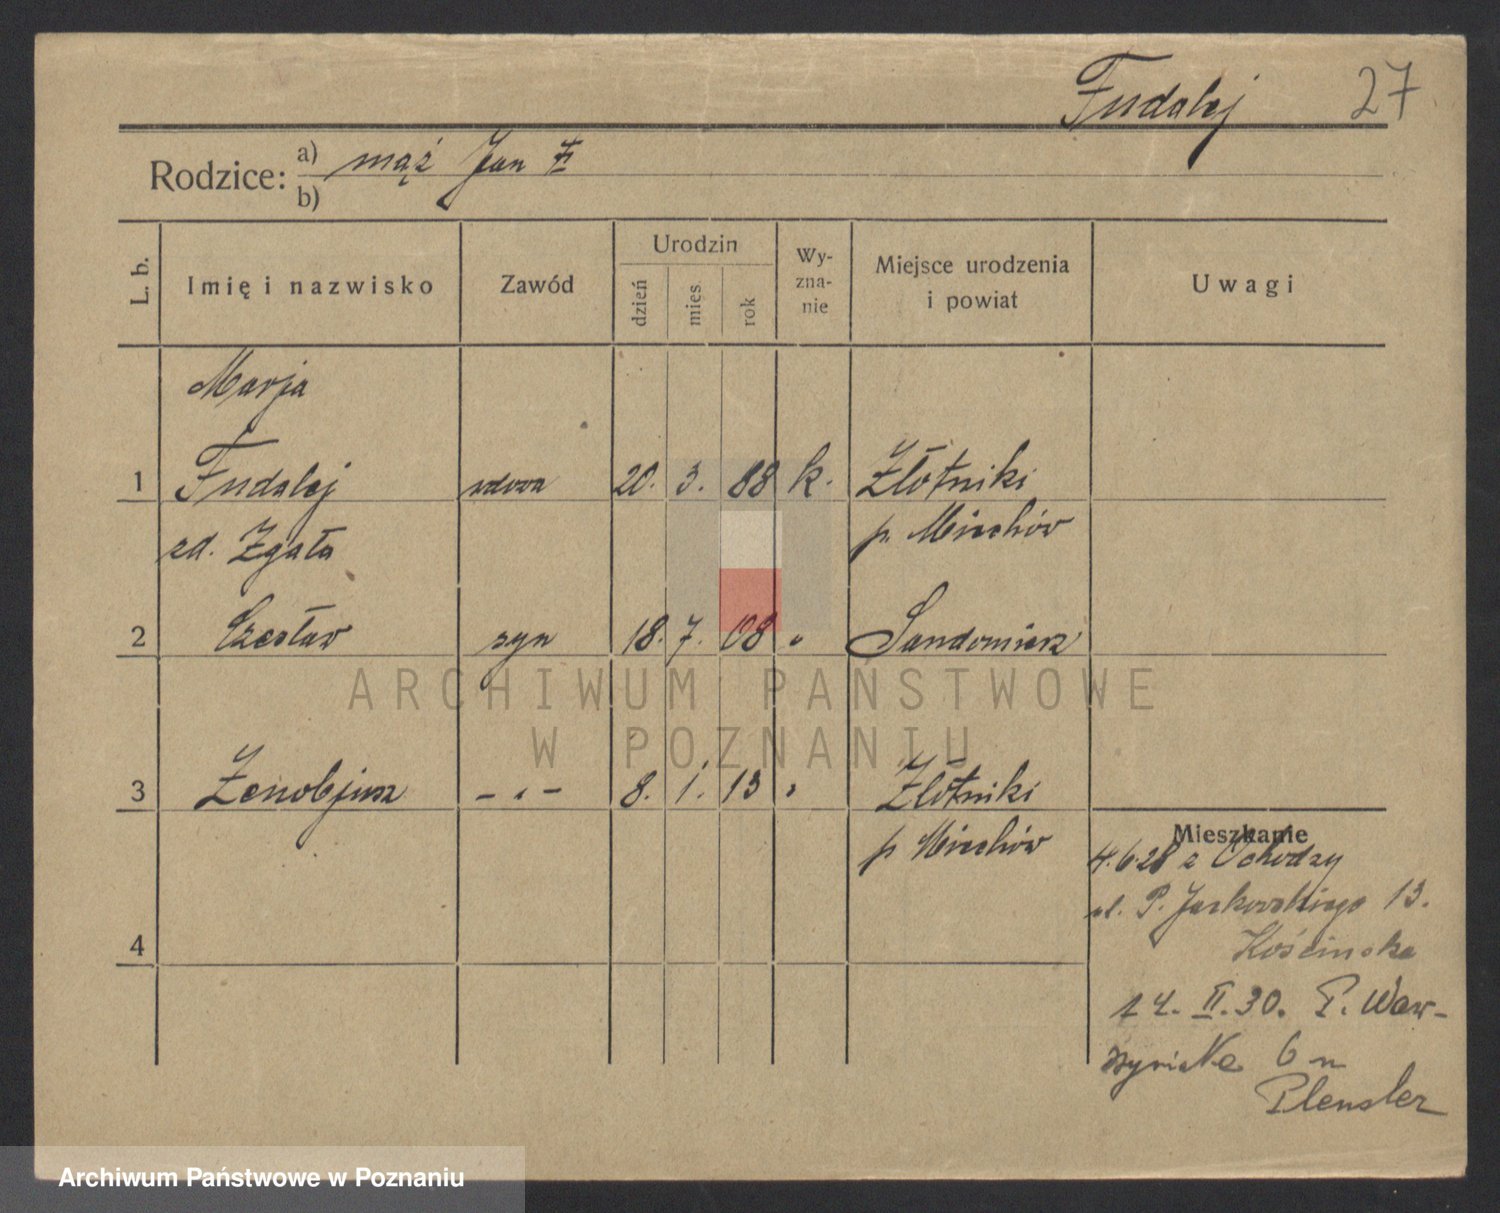 Fudalej 27
Rodzice: a) mąż Jan F
b)
L. b. Imię i nazwisko Zawód Urodzin dzień mies. rok Wyznanie Miejsce urodzenia i powiat Uwagi
Marja
1 Fudalej wdowa 20. 3. 88 k. Złotniki
zd. Zgała p. Miechów
2 Czesław syn 18. 7. 08 " Sandomierz
ARCHIWUM PAŃSTWOWE
W POZNANIU
3 Zenobjusz - " - 8. 1. 13 " Złotniki
p Miechów
Mieszkanie
4.6.28 z Ochodzy
ul. P. Jackowskiego 13.
4
Kościńska
14. II. 30. P. Waw-
rzyniaka 6 n
Plensler
Archiwum Państwowe w Poznaniu